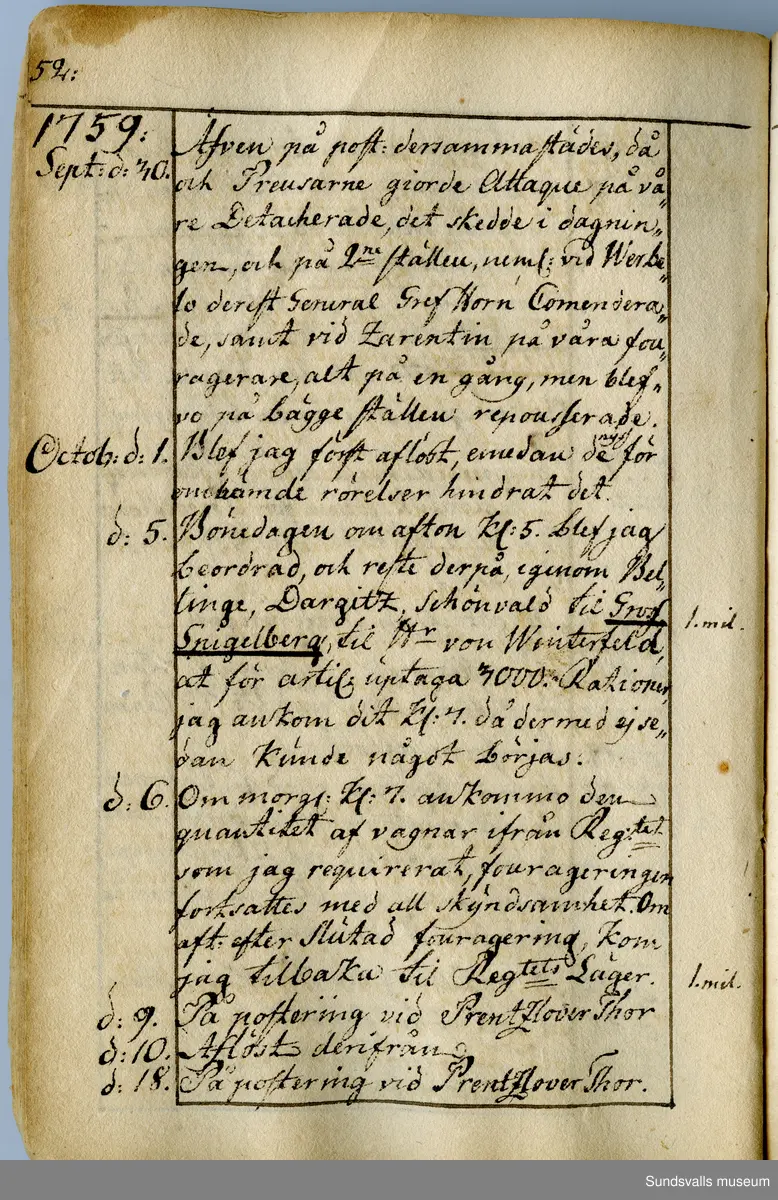 52:
1759:
Sept: d: 30. Äfven på post: dersammastädes, då
och Preusarne giorde Attaque på vå„
re Detacherade, det skedde i dagnin„
gen, och på 2ne ställen, neml: vid Werbe„
lo derest General Gref Horn Comendera„
de, samt vid Zarentin på våra fou„
ragerare, alt på en gång, men blef„
vo på bägge ställen repousserade.
Octob: d: 1. Blef jag först aflöst, emedan de nys för
nämde rörelser hindrat det.
d: 5. Bönedagen om afton Kl: 5. blef jag
beordrad, och reste derpå, igenom Bel„
linge, Dargitz, Schönvald til Gros
Spigelberg, til Hr von Winterfeld, 1. mil.
at för artil: uptaga 3000. Rationer,
jag ankom dit Kl: 7. då dermed ej se„
dan kunde något börjas.
d: 6. Om morg: Kl: 7. ankommo den
quantitet af vagnar ifrån Regtet
som jag requirerat, fourageringen
fortsattes med all skyndsamhet. Om
aft: efter slutad fouragering, kom
jag tilbaka til Regtets Läger. 1. mil.
d: 9. På postering vid Prentzlover Thor
d: 10. Aflöst derifrån
d: 18. På postering vid Prentzlover Thor.
Sundsvalls museum